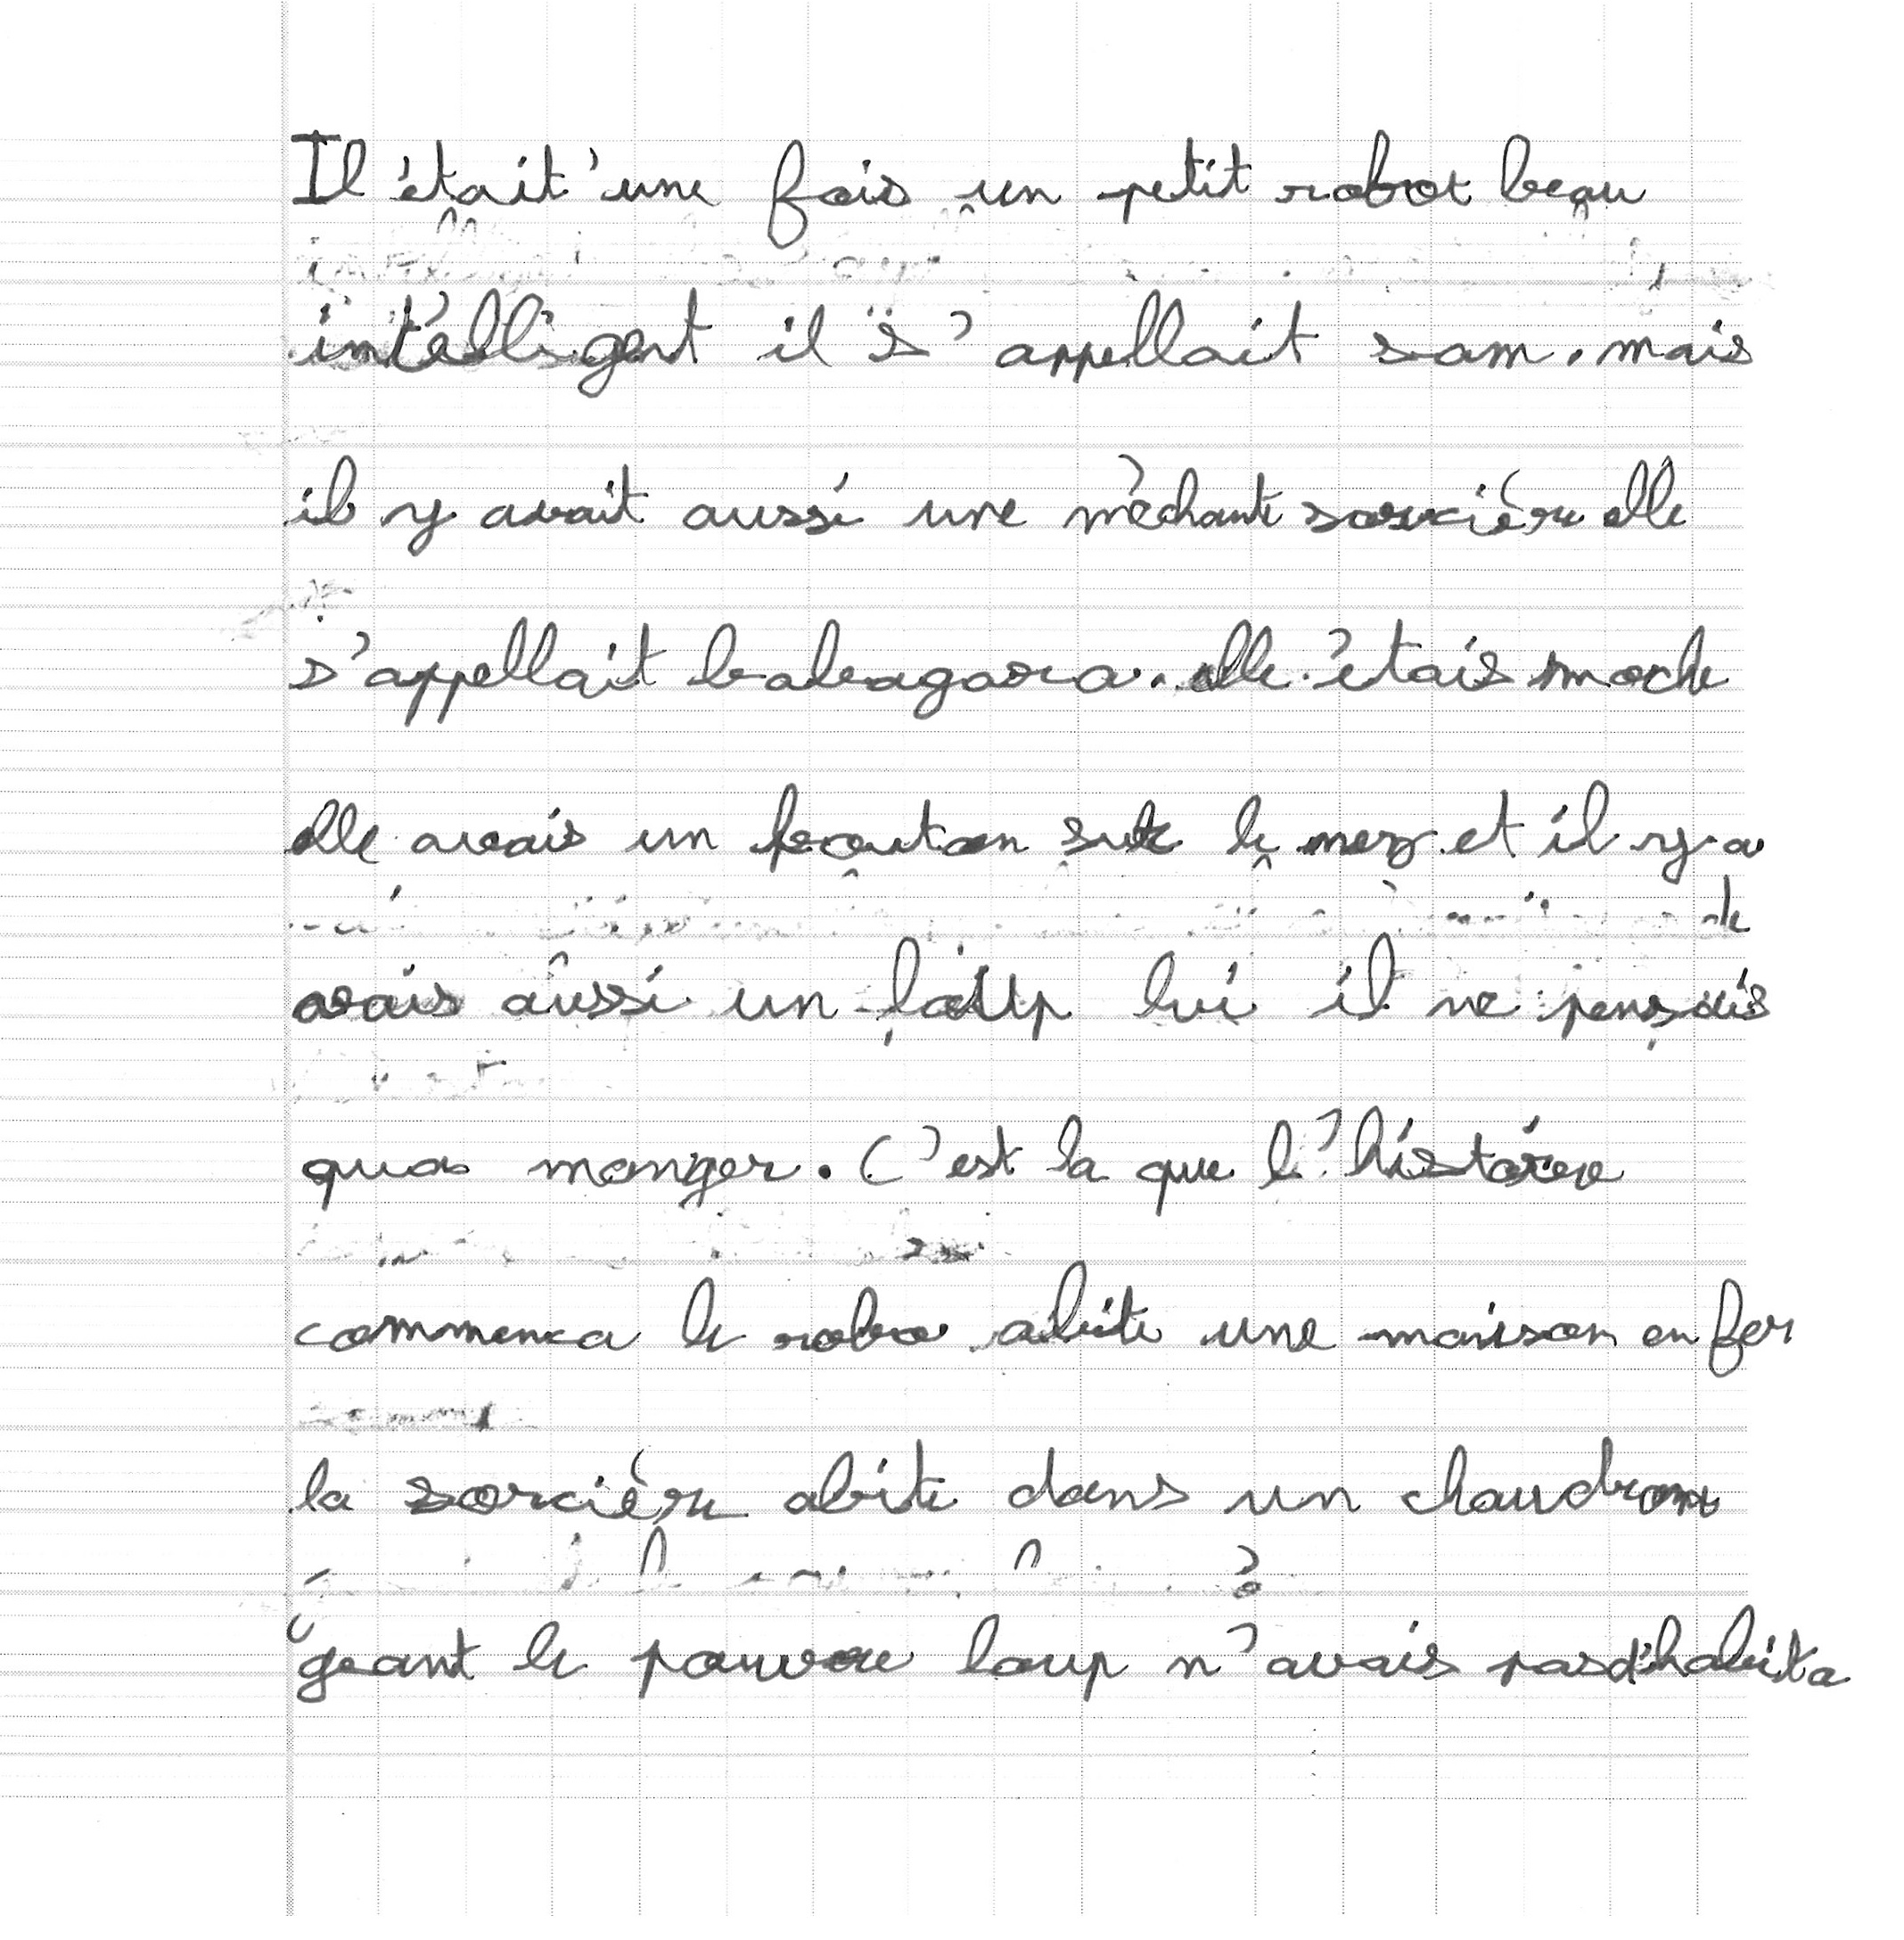 Il était une fois un petit robot beau
intélligent il s'appellait sam. mais
il y avait aussi une méchante sorcière elle
s'appellait babagara. elle étais moche
elle avais un bouton sur le nez et il y a
avais aussi un loup lui il ne pensais
qua manger. C'est la que l'histoire
commenca le robo abite une maison en fer
la sorcière abite dans un chaudron
geant le pauvre loup n'avais pas d'habita